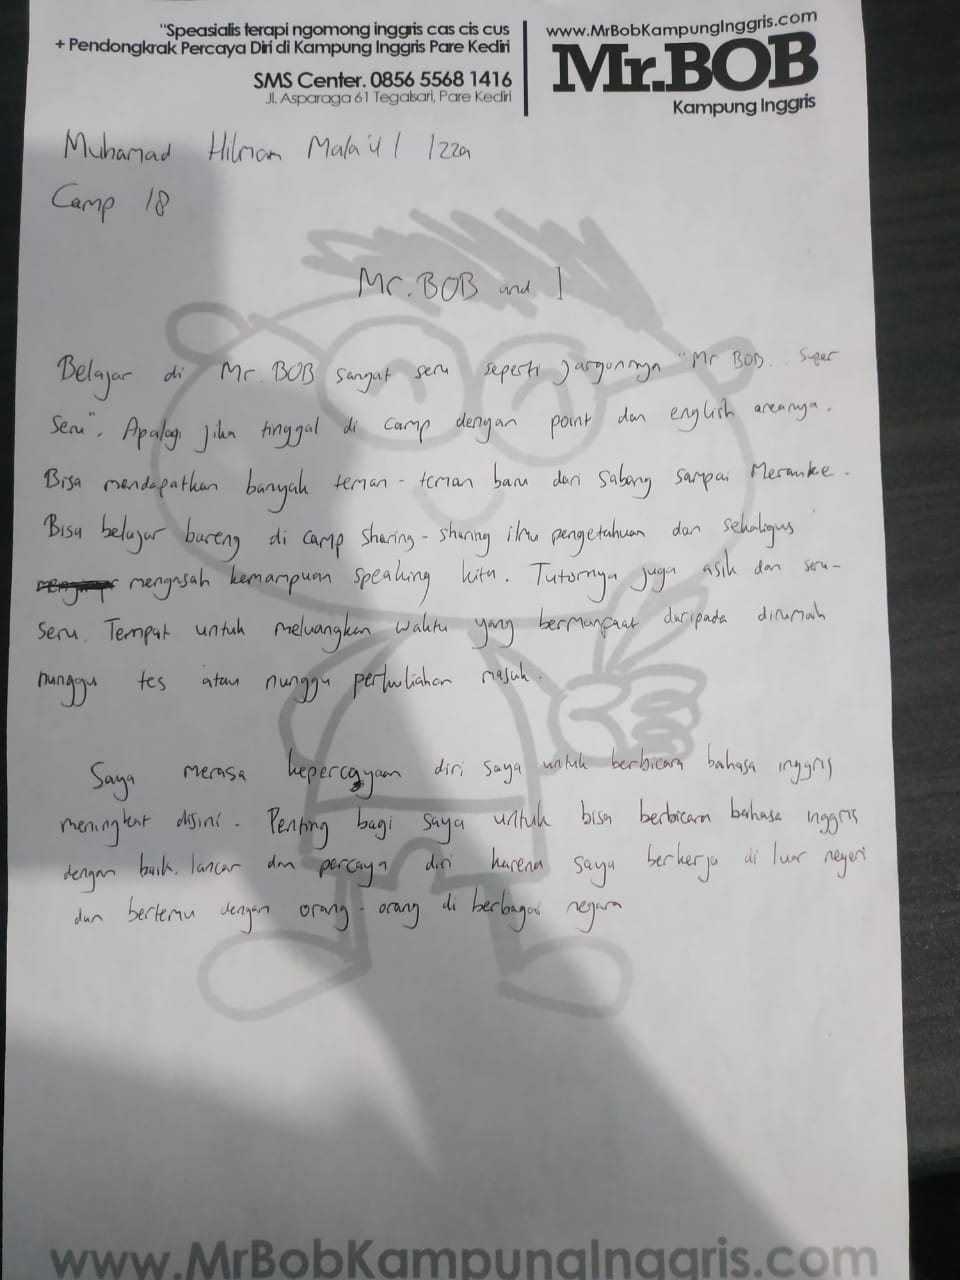 "Speasialis terapi ngomong inggris cas cis cus
+ Pendongkrak Percaya Diri di Kampung Inggris Pare Kediri
SMS Center. 0856 5568 1416
Jl. Asparaga 61 Tegalsari, Pare Kediri
www.MrBobKampungInggris.com
Mr.BOB
Kampung Inggris
Muhamad Hilman Mala'ul Izza
Camp 18
Mr. BOB and I
Belajar di Mr. BOB sangat seru seperti jargonnya "Mr BOB.. Super
Seru". Apalagi jika tinggal di camp dengan point dan english areanya.
Bisa mendapatkan banyak teman-teman baru dari Sabang sampai Merauke.
Bisa belajar bareng di camp sharing-sharing ilmu pengetahuan dan sekaligus
mengasah kemampuan speaking kita. Tutornya juga asik dan seru-
seru. Tempat untuk meluangkan waktu yang bermanfaat daripada dirumah
nunggu tes atau nunggu perkuliahan masuk.
Saya merasa kepercayaan diri saya untuk berbicara bahasa inggris
meningkat disini. Penting bagi saya untuk bisa berbicara bahasa inggris
dengan baik, lancar dan percaya diri karena saya berkerja di luar negeri
dan bertemu dengan orang-orang di berbagai negara
www.MrBobKampungInggris.com